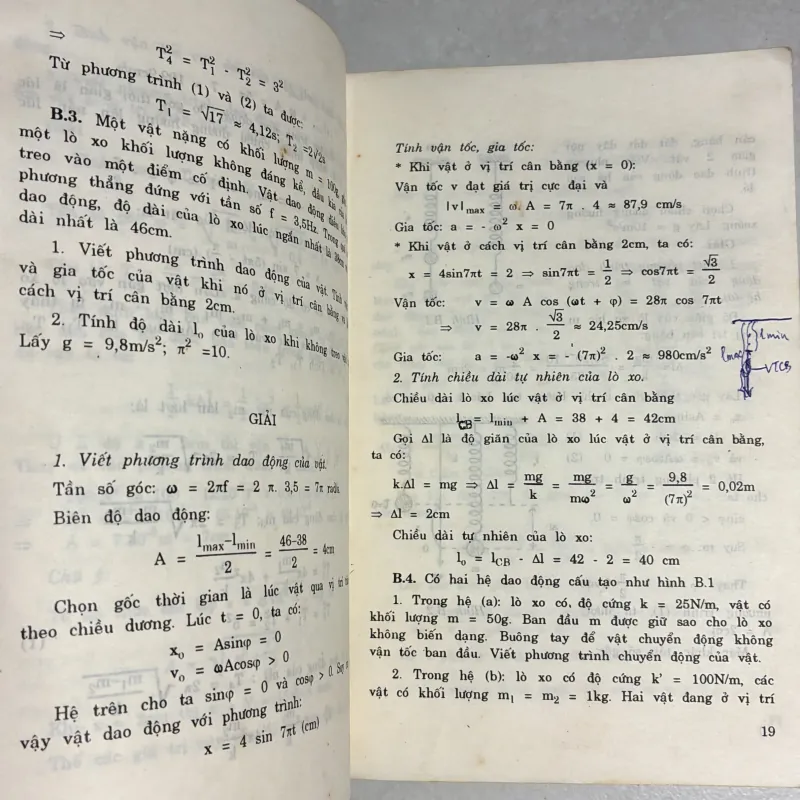 ⇒
T₄² = T₁² - T₂² = 3²
Từ phương trình (1) và (2) ta được:
T₁ = √17 ≈ 4,12s; T₂ =2√2s
B.3. Một vật nặng có khối lượng m = 100g,
một lò xo khối lượng không đáng kể, đầu kia
treo vào một điểm cố định. Vật dao động điều
phương thẳng đứng với tần số f = 3,5Hz. Trong
dao động, độ dài của lò xo lúc ngắn nhất là 38cm
dài nhất là 46cm.
1. Viết phương trình dao động của vật. Tính
và gia tốc của vật khi nó ở vị trí cân bằng
cách vị trí cân bằng 2cm.
2. Tính độ dài l₀ của lò xo khi không treo
Lấy g = 9,8m/s²; π² =10.
GIẢI
1. Viết phương trình dao động của vật.
Tần số góc: ω = 2πf = 2 π. 3,5 = 7π rad/s
Biên độ dao động:
A = (lmax–lmin)/2 = (46-38)/2 = 4cm
Chọn gốc thời gian là lúc vật qua vị trí
theo chiều dương. Lúc t = 0, ta có:
x₀ = Asinφ = 0
v₀ = ωAcosφ > 0
Hệ trên cho ta sinφ = 0 và cosφ > 0.
vậy vật dao động với phương trình:
x = 4 sin 7πt (cm)
Tính vận tốc, gia tốc:
* Khi vật ở vị trí cân bằng (x = 0):
Vận tốc v đạt giá trị cực đại và
|v|max = ω. A = 7π . 4 ≈ 87,9 cm/s
Gia tốc: a = - ω² x = 0
* Khi vật ở cách vị trí cân bằng 2cm, ta có:
x = 4sin7πt = 2 ⇒ sin7πt = 1/2 ⇒ cos7πt = √3/2
Vận tốc: v = ω A cos (ωt + φ) = 28π cos 7πt
⇒ v = 28π . √3/2 ≈ 24,25cm/s
Gia tốc: a = -ω² x = - (7π)² . 2 ≈ 980cm/s²
lmin
lmax
VTCB
2. Tính chiều dài tự nhiên của lò xo.
Chiều dài lò xo lúc vật ở vị trí cân bằng
lCB = lmin + A = 38 + 4 = 42cm
Gọi Δl là độ giãn của lò xo lúc vật ở vị trí cân bằng,
ta có:
k.Δl = mg ⇒ Δl = mg/k = mg/mω² = g/ω² = 9,8/(7π)² = 0,02m
⇒ Δl = 2cm
Chiều dài tự nhiên của lò xo:
l₀ = lCB - Δl = 42 - 2 = 40 cm
B.4. Có hai hệ dao động cấu tạo như hình B.1
1. Trong hệ (a): lò xo có độ cứng k = 25N/m, vật có
khối lượng m = 50g. Ban đầu m được giữ sao cho lò xo
không biến dạng. Buông tay để vật chuyển động không
vận tốc ban đầu. Viết phương trình chuyển động của vật.
2. Trong hệ (b): lò xo có độ cứng k' = 100N/m, các
vật có khối lượng m₁ = m₂ = 1kg. Hai vật đang ở vị trí
19